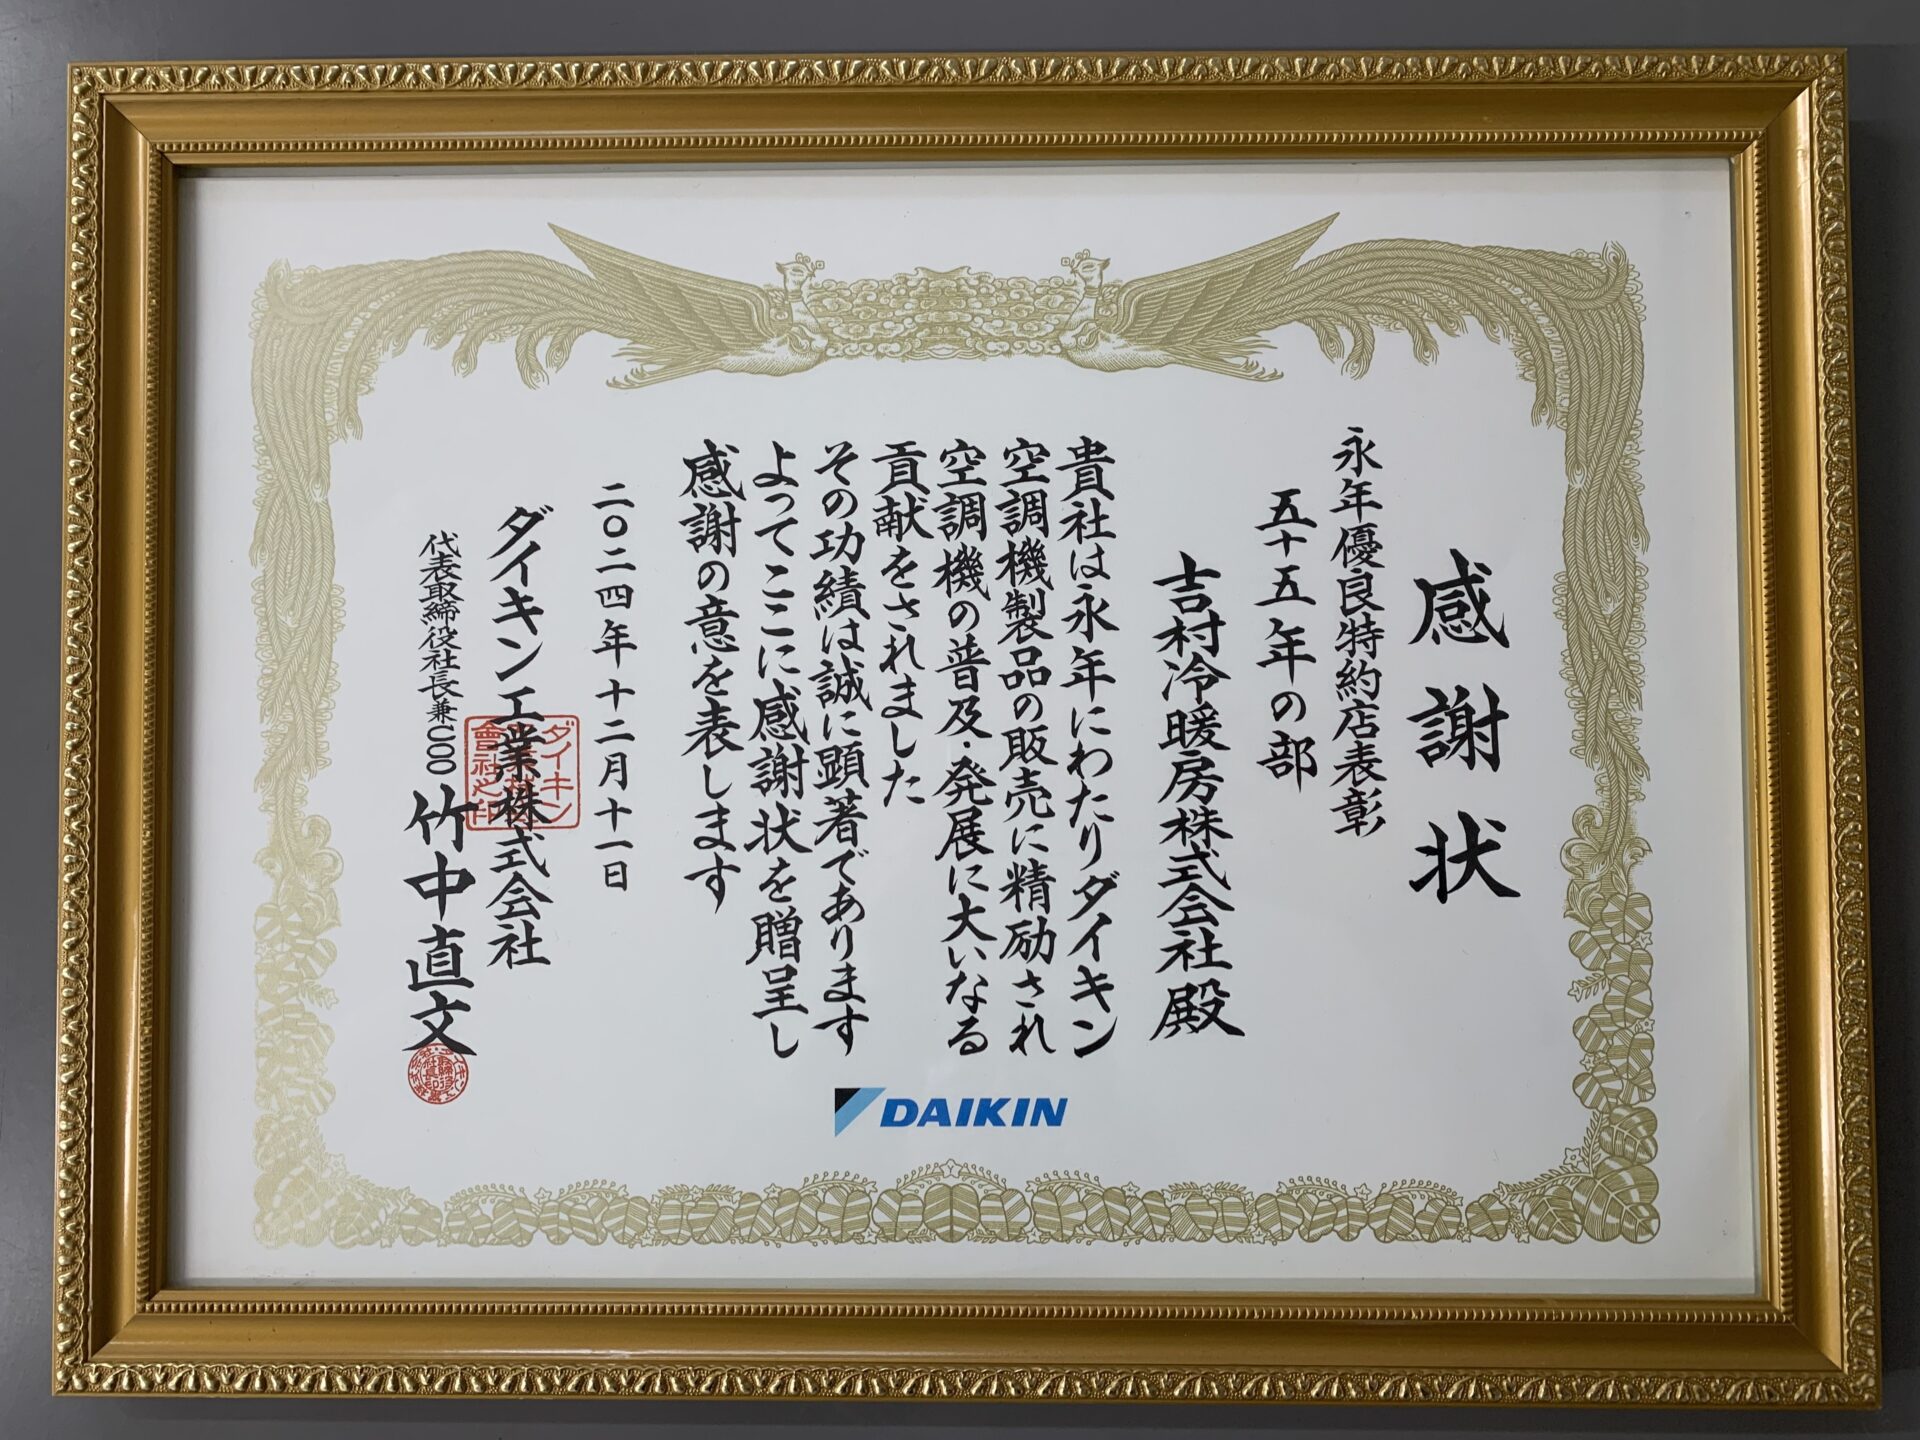 感謝状
永年優良特約店表彰
五十五年の部
吉村冷暖房株式会社殿
貴社は永年にわたりダイキン
空調機製品の販売に精励され
空調機の普及・発展に大いなる
貢献をされました
その功績は誠に顕著であります
よってここに感謝状を贈呈し
感謝の意を表します
二〇二四年十二月十一日
ダイキン工業株式会社
代表取締役社長兼COO 竹中直文
DAIKIN